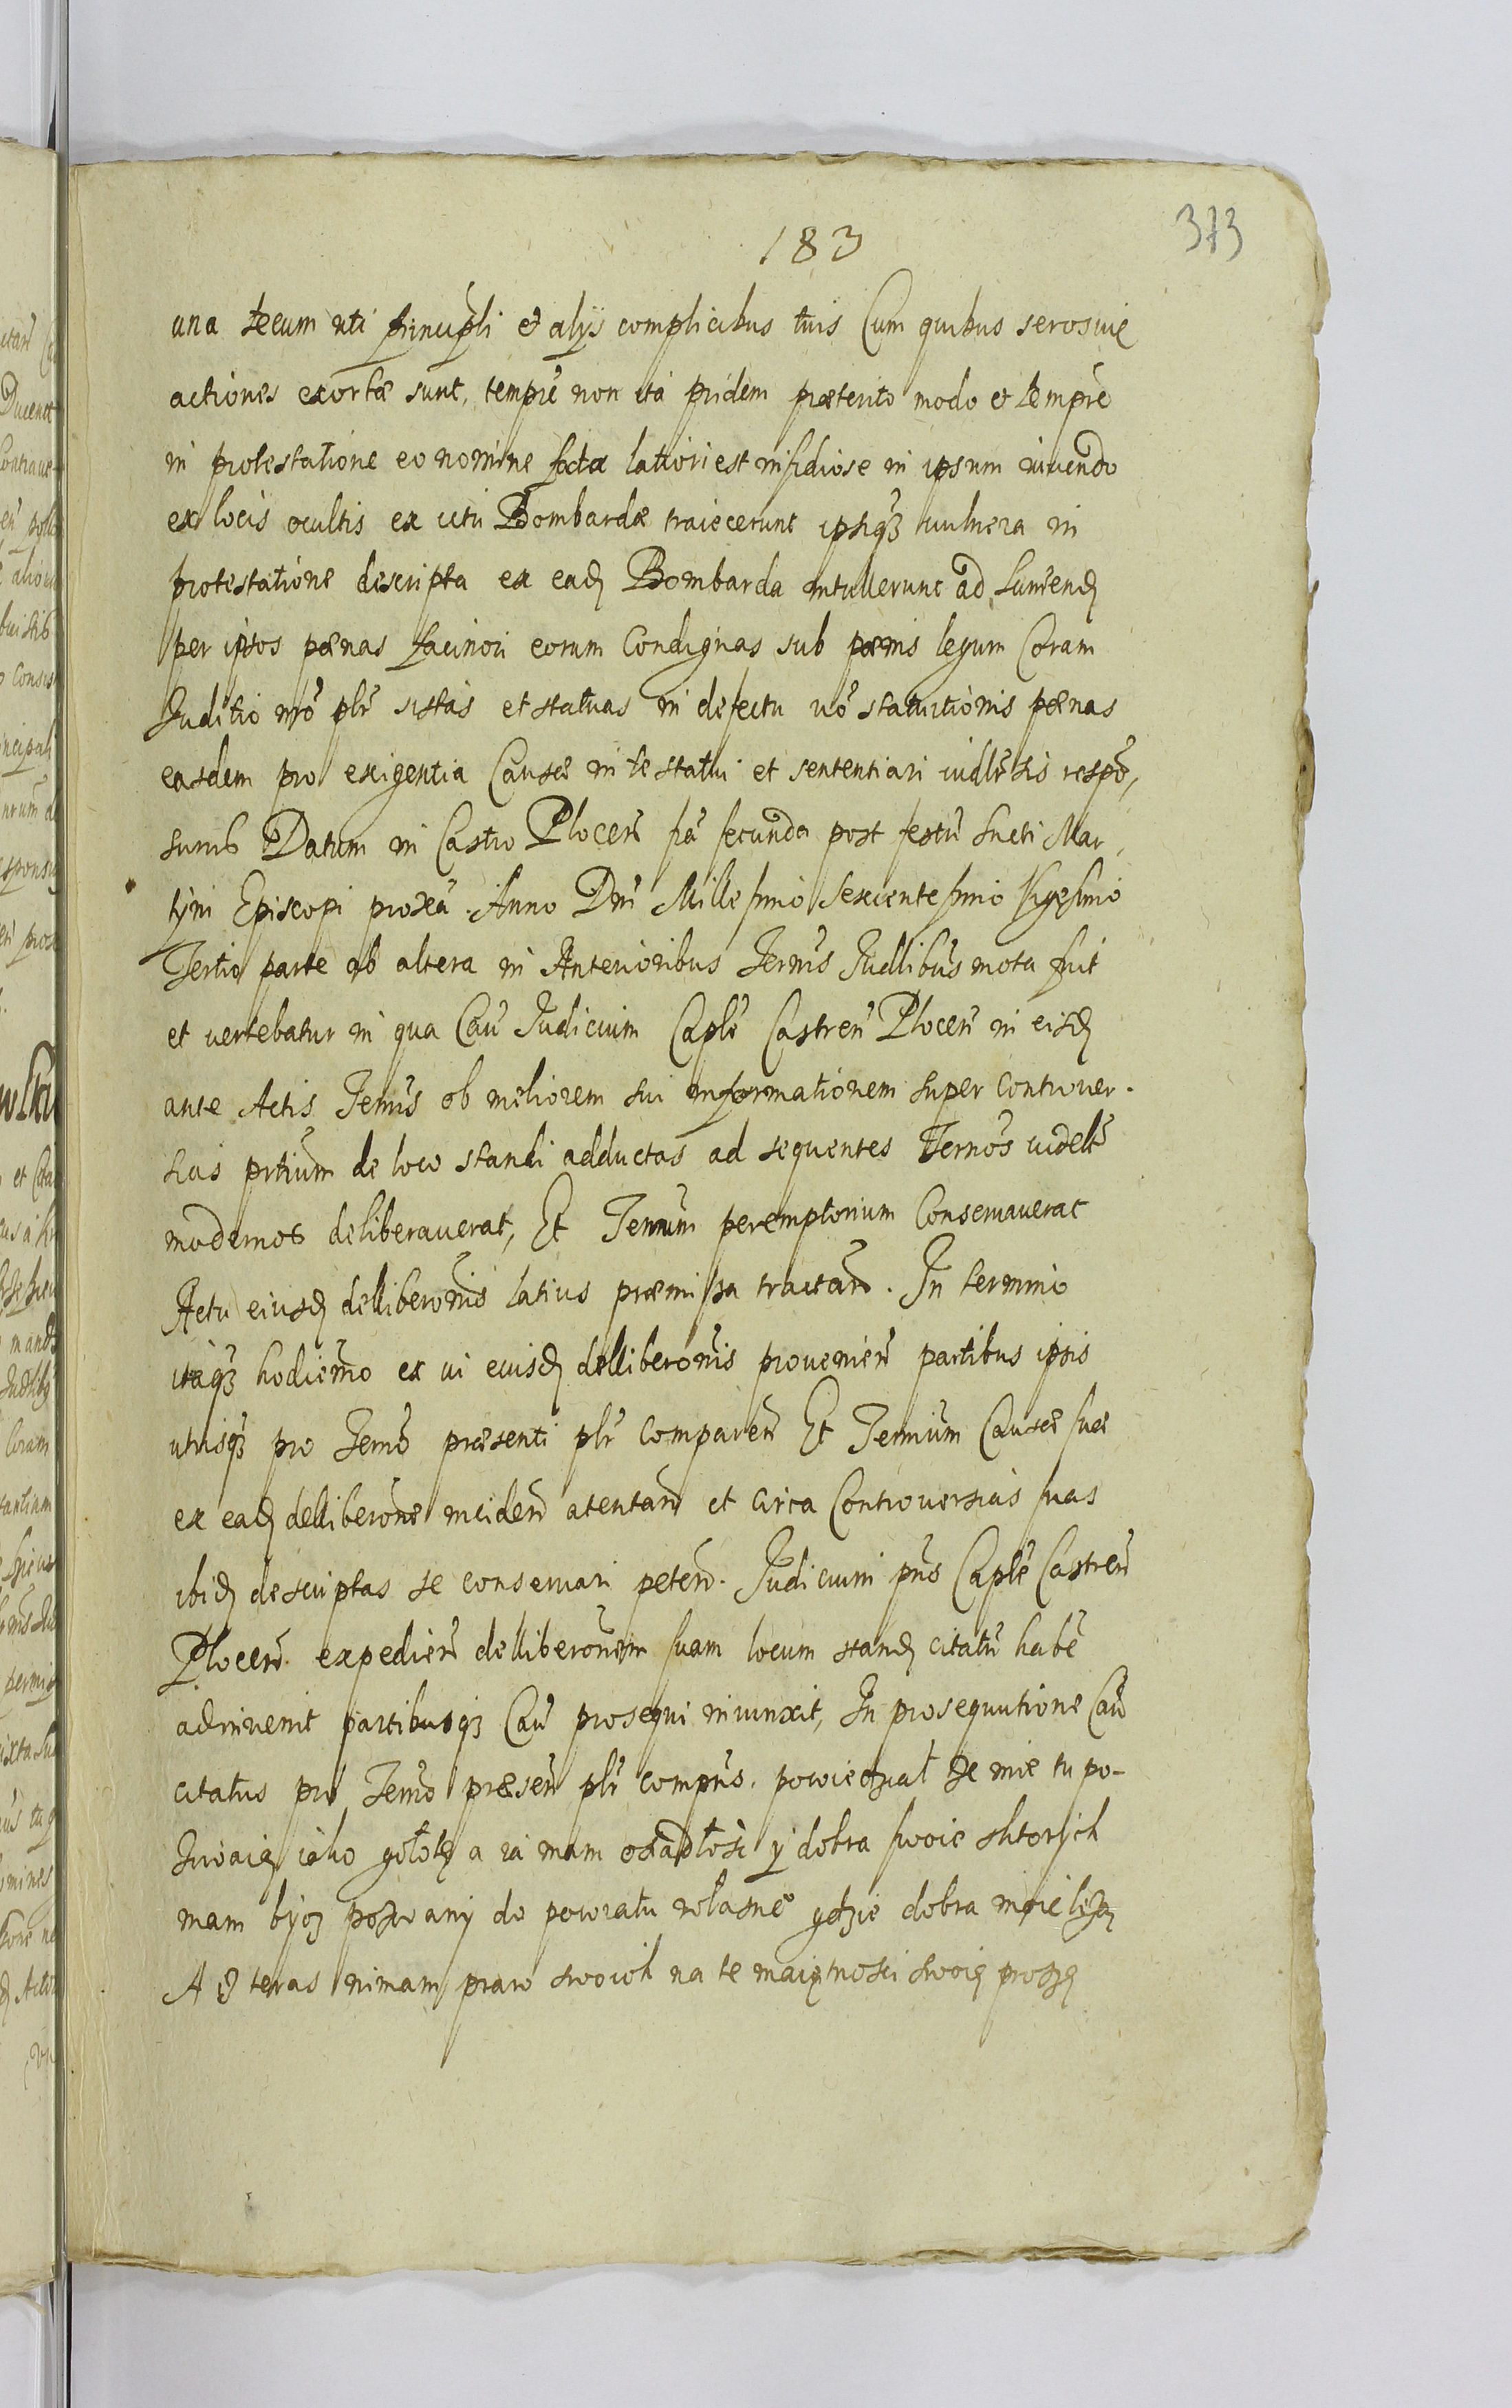 183
373
una tecum uti principli et alijs complicibus tuis Cum quibus
actiones exortæ sunt, tempre non ita pridem præterito modo et tempre
in protestatione eo nomine facta latiori est insidiose in ipsum
ex locis ocultis ex ictu Bombardæ traiecerunt ipsiq3 vulnera in
protestatione descripta ex ead Bombarda intullerunt ad sumend
per ipsos pænas facinori eorum Condignas sub pænis legum Coram
Juditio nro plr sistas et statuas in defectu vo statuitionis pænas
easdem pro exigentia Causæ in te statui et sententiari respon,
surus Datum in Castro Plocen fa secunda post festu Sncti Mar,
tyni Episcopi proxa. Anno Dni Millesimo Sexcentesimo Vigesimo
Tertio parte ab altera in Anterioribus Termis Judlibus mota fuit
et vertebatur in qua Cau Judicium Caple Castren Plocen in eisd
ante Actis Termis ob meliorem sui informationem super Controver.
sias prtium de loco standi adductas ad sequentes Termos videlt
modernos deliberaverat, Et Termum peremptorium Conservaverat
Actu eiusd delliberonis latius præmissa tractan. In termino
itaq3 hodierno ex vi eiusd delliberonis provenien partibus ipsis
utrisq3 pro Termo præsenti plr Comparen Et Terminum Causæ suæ
ex ead delliberone inciden atentan et circa Controversias suas
ibid descriptas se conservari peten. Judicium pns Caple Castren
Plocen. expedien delliberonem suam locum stand citatu habe
adinvenit partibusq3 Cau prosequi iniunxit, In prosequutione Cau
citatus pro Termo præsen plr compns. powiedzial ze mie tu po-
zwaią iako gołotę a ia mam osiadłosc y dobra swoie sktorych
mam bydz pozwany do powiatu własne gdzie dobra moie lezą
A teras nimam praw swoich na te maiętnosci swoię proszę